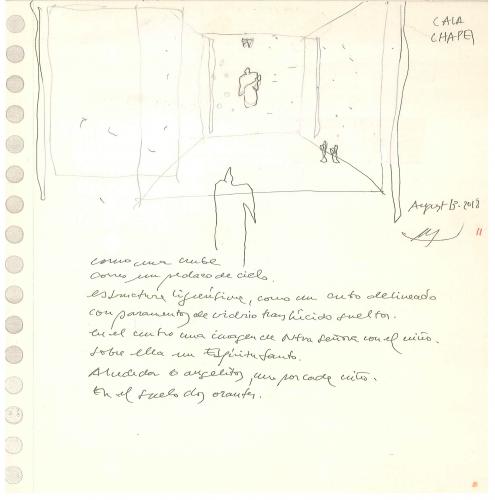 CALA
CHAPEL
August 13-2018
11
como una nube
como un pedazo de cielo.
estructura ligerísima, como un cubo delineado
con paramentos de vidrio translúcido sueltos.
en el centro una imagen de Ntra Señora con el niño.
sobre ella un Espíritu Santo.
Alrededor 6 angelitos, uno por cada niño.
En el suelo dos orantes.